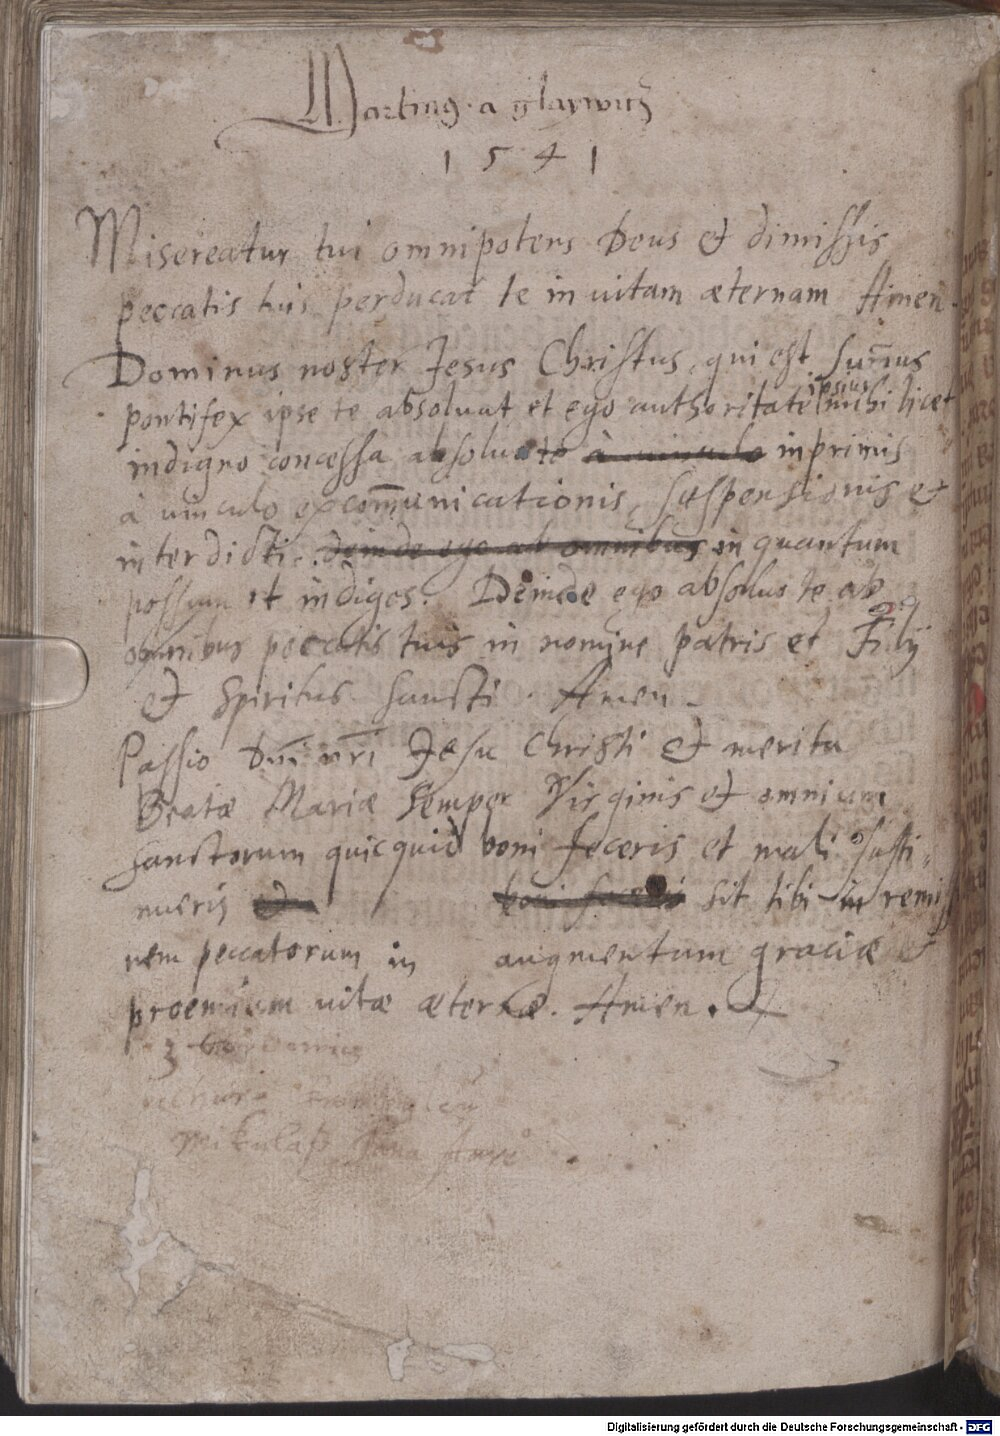 Martinus a glaywitz
1541
Misereatur tui omnipotens Deus et dimissis
peccatis tuis perducat te in uitam æternam Amen.
Dominus noster Jesus Christus, qui est Sum̄us
pontifex ipse te absoluat et ego authoritate ipsius mihi licet
indigno concessa absoluo te à uinculo inprimis
à uinculo excom̄unicationis, suspensionis et
interdicti. deinde ego ab omnibus in quantum
possum et indiges. Deinde ego absoluo te ab
omnibus peccatis tuis in nomine patris et Filij
et Spiritus Sancti. Amen.
Passio Dn̄i nr̄i Jesu Christi et merita
Beatæ Mariæ Semper Virginis et omnium
sanctorum quicquid boni feceris et mali susti=
nueris et boni feceris sit tibi in remissi
nem peccatorum in augmentum graciæ et
proemium uitæ æternæ. Amen.
Mikulass Jana
Digitalisierung gefördert durch die Deutsche Forschungsgemeinschaft - DFG